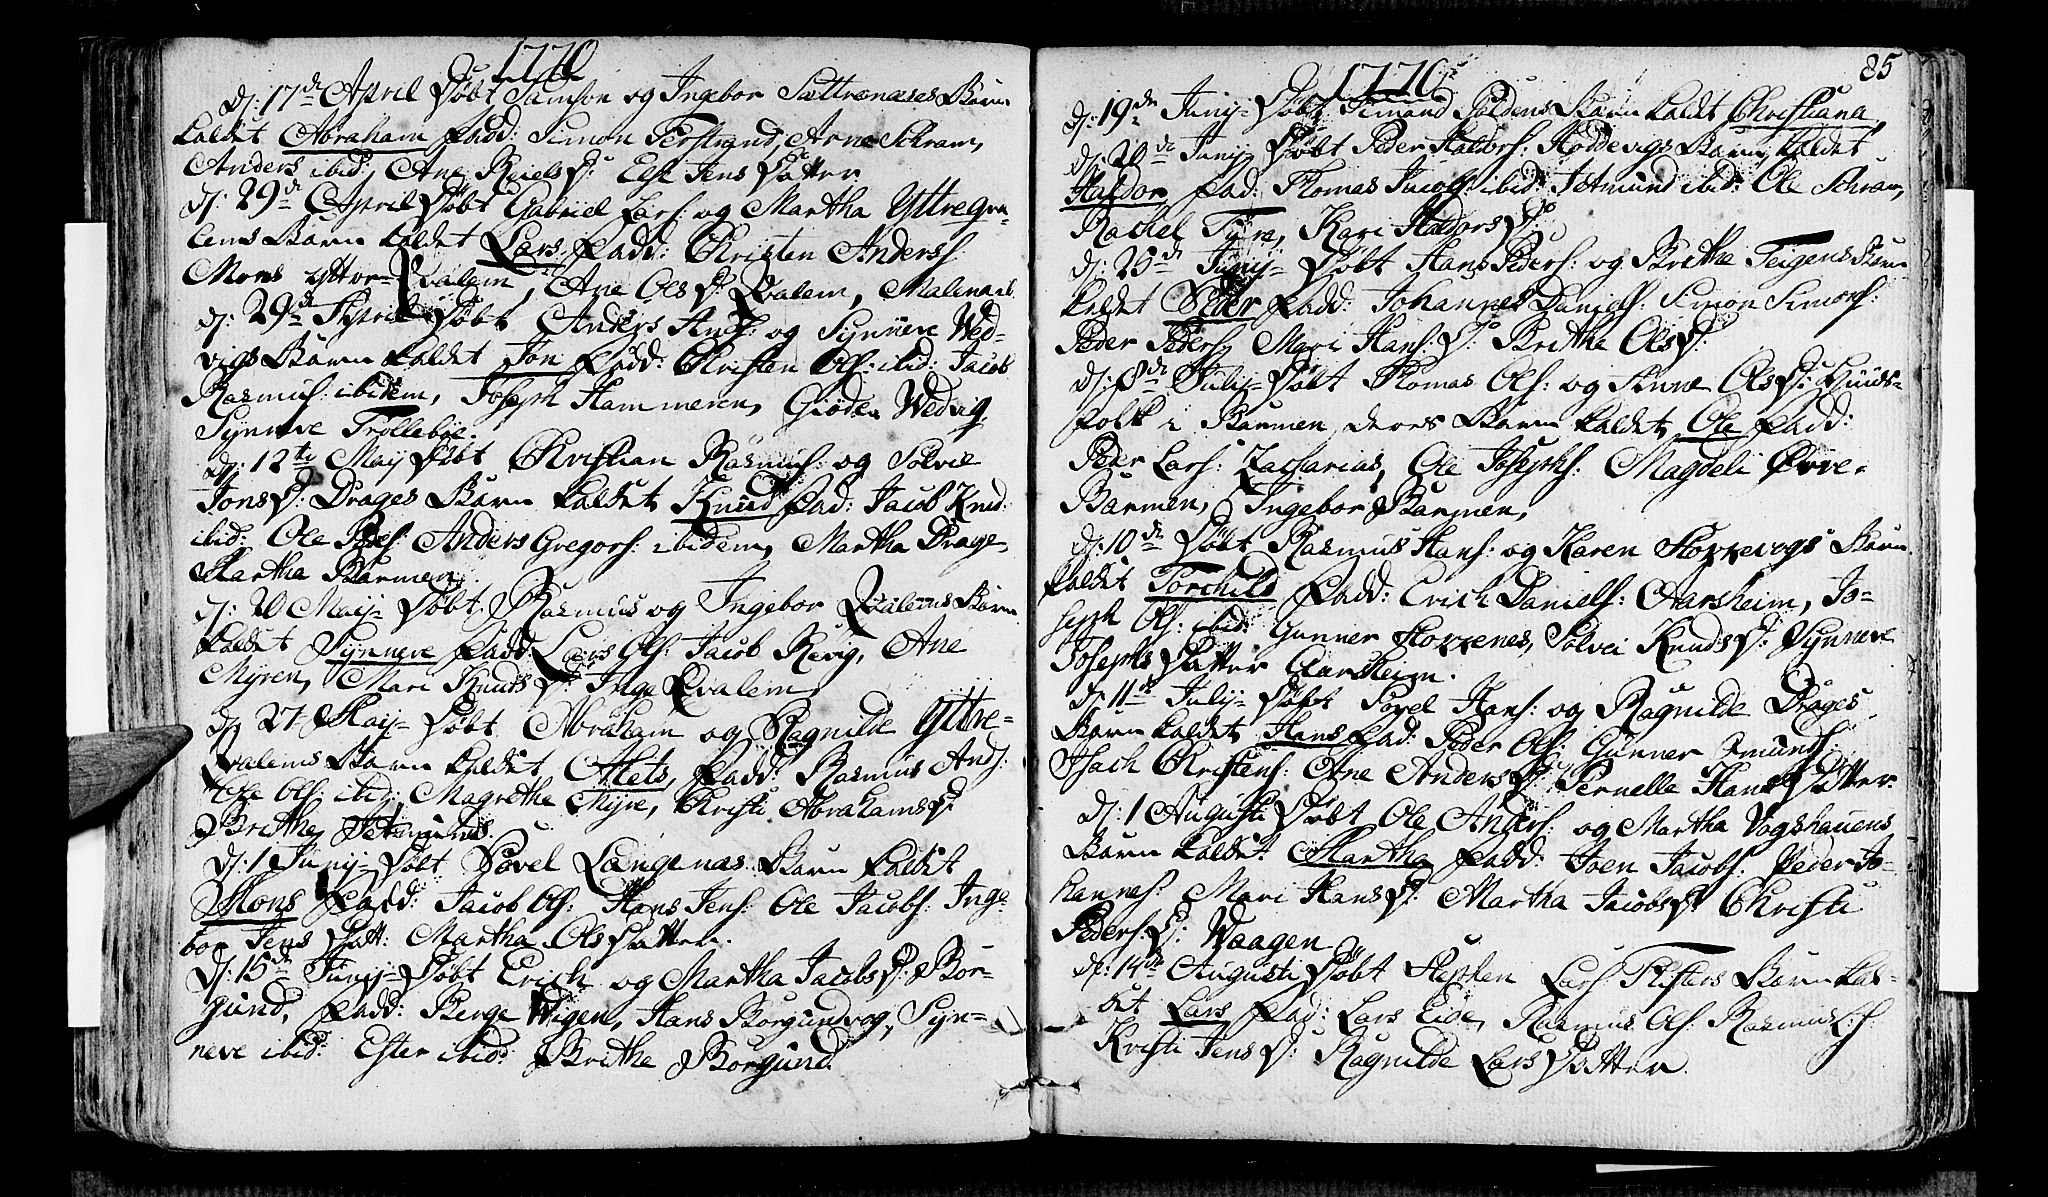 1770
d: 17de April Døbt Samson og Ingebor Sættrenæses Barn
kaldet Abraham fadd: Simon Ferstrand, Arne Schram,
Anders ibid: Ane Reiels D: Else Jens Datter
d: 29de April Døbt Gabriel Lars: og Martha Yttregra-
lems Barn kaldet Lars, fadd: Christen Anders:
Mons ytter-Qvalem, Ane Ols D: Qvalem, Malena ib.
d: 29de April Døbt Anders And: og Synneve Wed-
vigs Barn kaldet Jon fadd: Christen Ols: ibid: Jacob
Rasmus: ibidem, Joseph Hammeren, Giøde Wedvig
Synneve Trollebøe.
d: 12te Maij Døbt Christian Rasmus: og Solvie
Jons D: Drages Barn kaldet Knud fad: Jacob Knud:
ibid: Ole Peders: Anders Gregors: ibidem, Martha Drage,
Martha Barmen.
d: 20 Maij Døbt Rasmus og Ingebor Qvalems Barn
kaldet Synneve fadd: Lars Ols: Jacob Revig, Ane
Myren, Mari Knuds D: Inge Qvalem
d: 27 Maij Døbt Abraham og Ragnilde Yttre-
Qvalems Barn kaldet Alets, fadd: Rasmus And:
Ole Ols: ibid: Magrethe Myre, Christi Abrahams D:
Brithe Jetmunds.
d: 1 Junij Døbt Povel Langenæs Barn kaldet
Mons fadd: Jacob Ols: Hans Jens: Ole Jacobs: Inge-
bor Jens Datt: Martha Ols Datter.
d: 15de Junij Døbt Erich og Martha Jacobs D: Bor-
gund, fadd: Berge Wigen, Hans Borgundvog, Syn-
neve ibid: Ester ibid: Brithe Borgund.
1770
85
d: 19de Junij Døbt Amund Pøldens Barn kaldet Christiana,
d: 20de Junij Døbt Peder Haldors: Hoddevigs Barn, kaldet
Haldor, fad: Thomas Jacobs: ibid: Jetmund ibid: Ole Schram,
Rachel Tyre, Kari Haldors D:
d: 25de Junij Døbt Hans Peders: og Brithe Teigens Barn
kaldet Peder fadd: Johannes Daniels: Simon Simons:
Peder Peders, Mari Hans: D: Brithe Ols D:
d: 8de Julij Døbt Thomas Ols: og Anne Ols D: Huus-
folk i Barmen, deres Barn kaldet Ole fadd:
Peder Lars: Zacharias, Ole Josephs: Magdeli Øvre-
Barmen, Ingebor Barmen,
d: 10de Døbt Rasmus Hans: og Karen Horrevogs Barn
kaldet Torchild fadd: Erich Daniels: Aarsheim, Jo-
seph Ols: ibid: Gunner Horrenes, Solvei Knuds D: Synneve
Josephs Datter Aarsheim.
d: 11te Julij Døbt Povel Hans: og Ragnilde Drages
Barn kaldet Hans fad: Peder Ols: Gunner Amunds:
Isach Christens: Ane Anders D: Pernelle Hans Datter.
d: 1 Augusti Døbt Ole Anders: og Martha Vogshauens
Barn kaldet Martha fadd: Joen Jacobs: Peder Jo-
hannes: Mari Hans D: Martha Jacobs D: Christi
Peders: D: Waagen
d: 14de Augusti Døbt Steffen Lars: Barn kal-
det Lars fad: Lars Eide, Rasmus Ols: Rasmus
Kristi Jens D: Ragnilde Lars Datter.